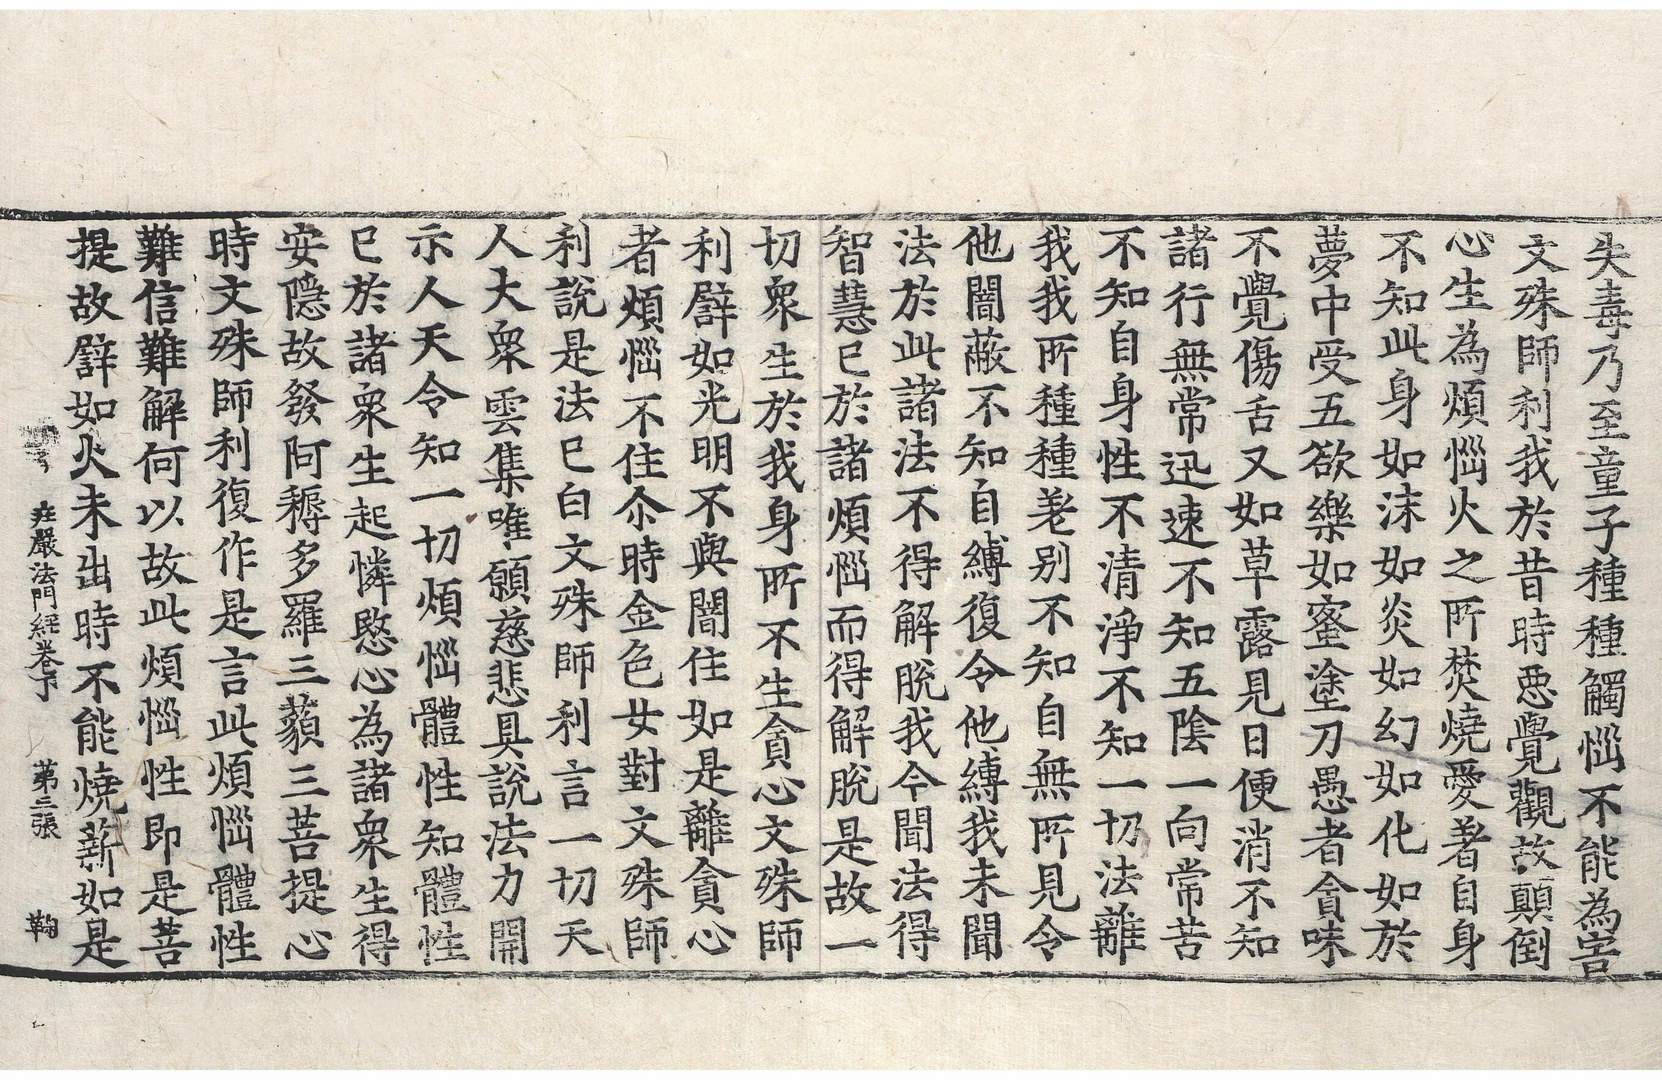 失毒乃至童子種種觸惱不能為害
文殊師利我於昔時惡覺觀故顛倒
心生為煩惱火之所焚燒愛著自身
不知此身如沫如炎如幻如化如於
夢中受五欲樂如蜜塗刀愚者貪味
不覺傷舌又如草露見日便消不知
諸行無常迅速不知五陰一向常苦
不知自身性不清淨不知一切法離
我我所種種差別不知自無所見令
他闇蔽不知自縛復令他縛我未聞
法於此諸法不得解脫我今聞法得
智慧已於諸煩惱而得解脫是故一
切衆生於我身所不生貪心文殊師
利譬如光明不與闇住如是離貪心
者煩惱不住尒時金色女對文殊師
利說是法已白文殊師利言一切天
人大衆雲集唯願慈悲具說法力開
示人天令知一切煩惱體性知體性
已於諸衆生起憐愍心為諸衆生得
安隱故發阿耨多羅三藐三菩提心
時文殊師利復作是言此煩惱體性
難信難解何以故此煩惱性即是菩
提故譬如火未出時不能燒薪如是
莊嚴法門經卷下 第三張 鞠